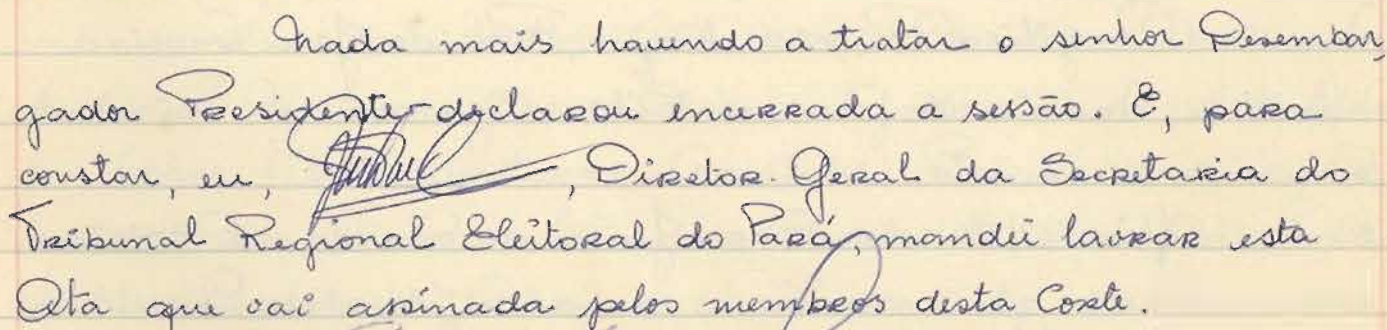 Nada mais havendo a tratar o senhor Desembar,
gador Presidente declarou encerrada a sessão. E, para
constar, eu, , Diretor-Geral da Secretaria do
Tribunal Regional Eleitoral do Pará, mandei lavrar esta
Ata que vai assinada pelos membros desta Corte.